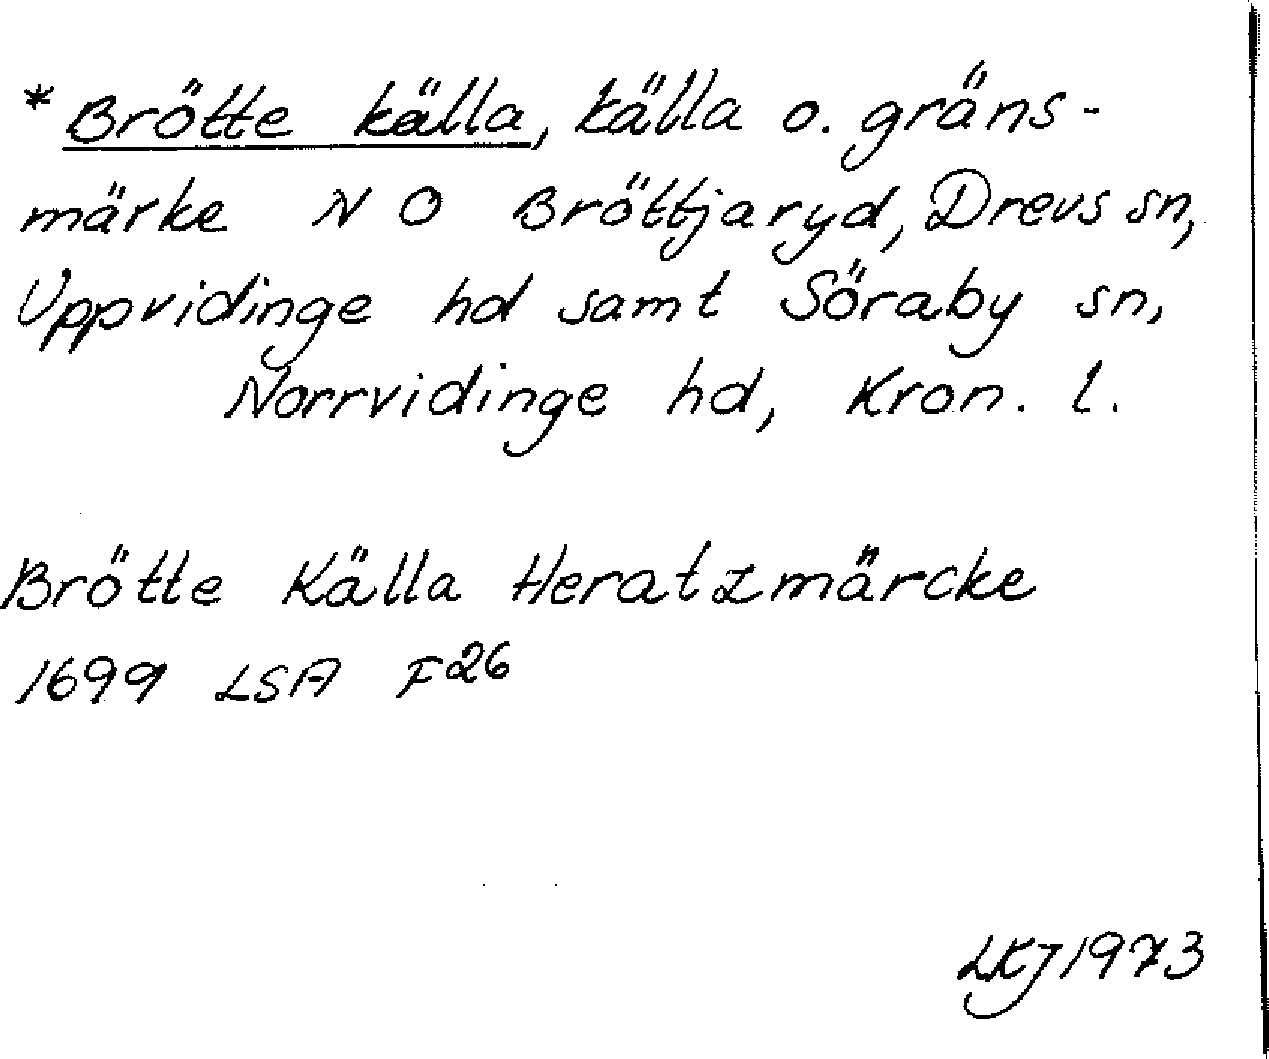 * Brötte källa, källa o. gräns-
märke N O Bröttjaryd, Drevs sn,
Uppvidinge hd samt Söraby sn,
Norrvidinge hd, Kron. l.
Brötte Källa Heratzmärcke
1699 LSA F26
LKJ 1973